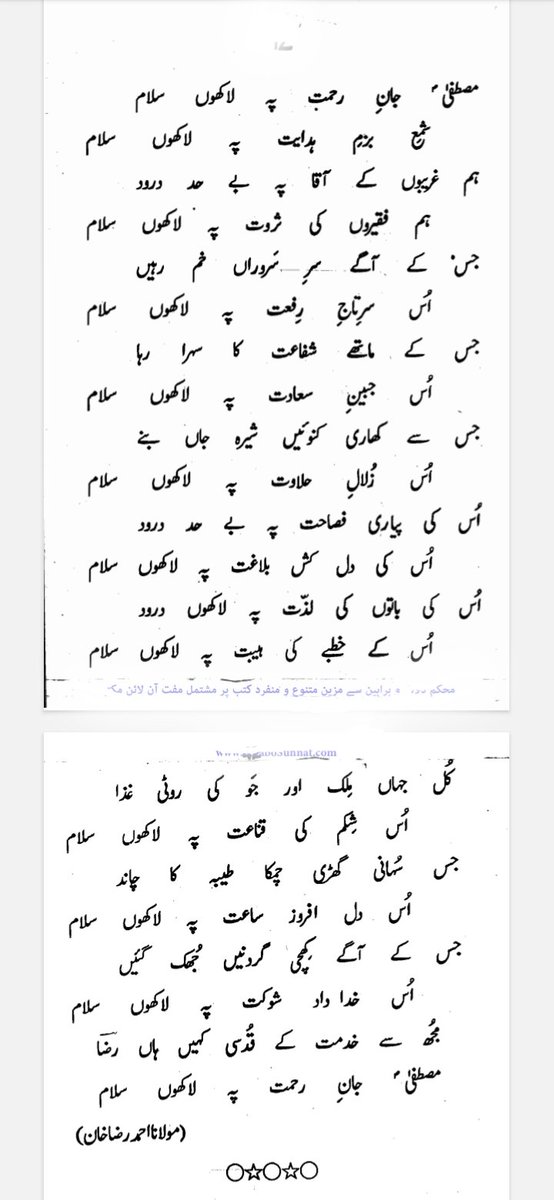 مصطفیٰ ؐ جانِ رحمت پہ لاکھوں سلام
شمعِ بزمِ ہدایت پہ لاکھوں سلام
ہم غریبوں کے آقا پہ بے حد درود
ہم فقیروں کی ثروت پہ لاکھوں سلام
جس کے آگے سرِ سَروراں خم رہیں
اُس سرِتاجِ رِفعت پہ لاکھوں سلام
جس کے ماتھے شفاعت کا سہرا رہا
اُس جبینِ سعادت پہ لاکھوں سلام
جس سے کھاری کنوئیں شیرہ جاں بنے
اُس زُلالِ حلاوت پہ لاکھوں سلام
اُس کی پیاری فصاحت پہ بے حد درود
اُس کی دل کش بلاغت پہ لاکھوں سلام
اُس کی باتوں کی لذّت پہ لاکھوں درود
اُس کے خطبے کی ہیبت پہ لاکھوں سلام
محکم براہین سے مزین متنوع و منفرد کتب پر مشتمل مفت آن لائن
کُل جہاں مِلک اور جَو کی روٹی غذا
اُس شِکم کی قناعت پہ لاکھوں سلام
جس سُہانی گھڑی چمکا طیبہ کا چاند
اُس دل افروز ساعت پہ لاکھوں سلام
جس کے آگے کِھچی گردنیں جُھک گئیں
اُس خدا داد شوکت پہ لاکھوں سلام
مُجھ سے خدمت کے قُدسی کہیں ہاں رضاؔ
مصطفیٰ ؐ جانِ رحمت پہ لاکھوں سلام
(مولانا احمد رضا خان)